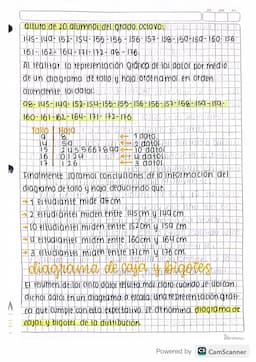 altura de 20 alumnos del grado octavo:
145-149-152-154-155-156-156-157-158-159-159-160-176
161-162-164-171-172-98-176.
Al realizar la representación gráfica de los datos por medio
de un diagrama de tallo y hoja ordenamos en orden
ascendente los datos:
98-145-149-152-154-155-156-156-157-158-159-159-
160-161-162-164-171-172-176
Tallo Hoja
9 8 ← 1 dato
14 59 ← 2 datos
15 ← 10 datos
16 0124 ← 4 datos
17 126 ← 3 datos
Finalmente sacamos conclusiones de la información del
diagrama de tallo y hoja deduciendo que:
→ 1 estudiante mide 98 cm
→ 2 estudiantes miden entre 145 cm y 149 cm
→ 10 estudiantes miden entre 152 cm y 159 cm
→ 4 estudiantes miden entre 160 cm y 164 cm
→ 3 estudiantes miden entre 171 cm y 176 cm.
diagrama de caja y bigotes
El resumen de los cinco datos resulta más claro cuando se ubican
dichos datos en un diagrama a escala. una representación gráfi-
ca que cumple con esta expectativa se denomina diagrama de
cajas y bigotes de la distribución.
Powered by CS CamScanner